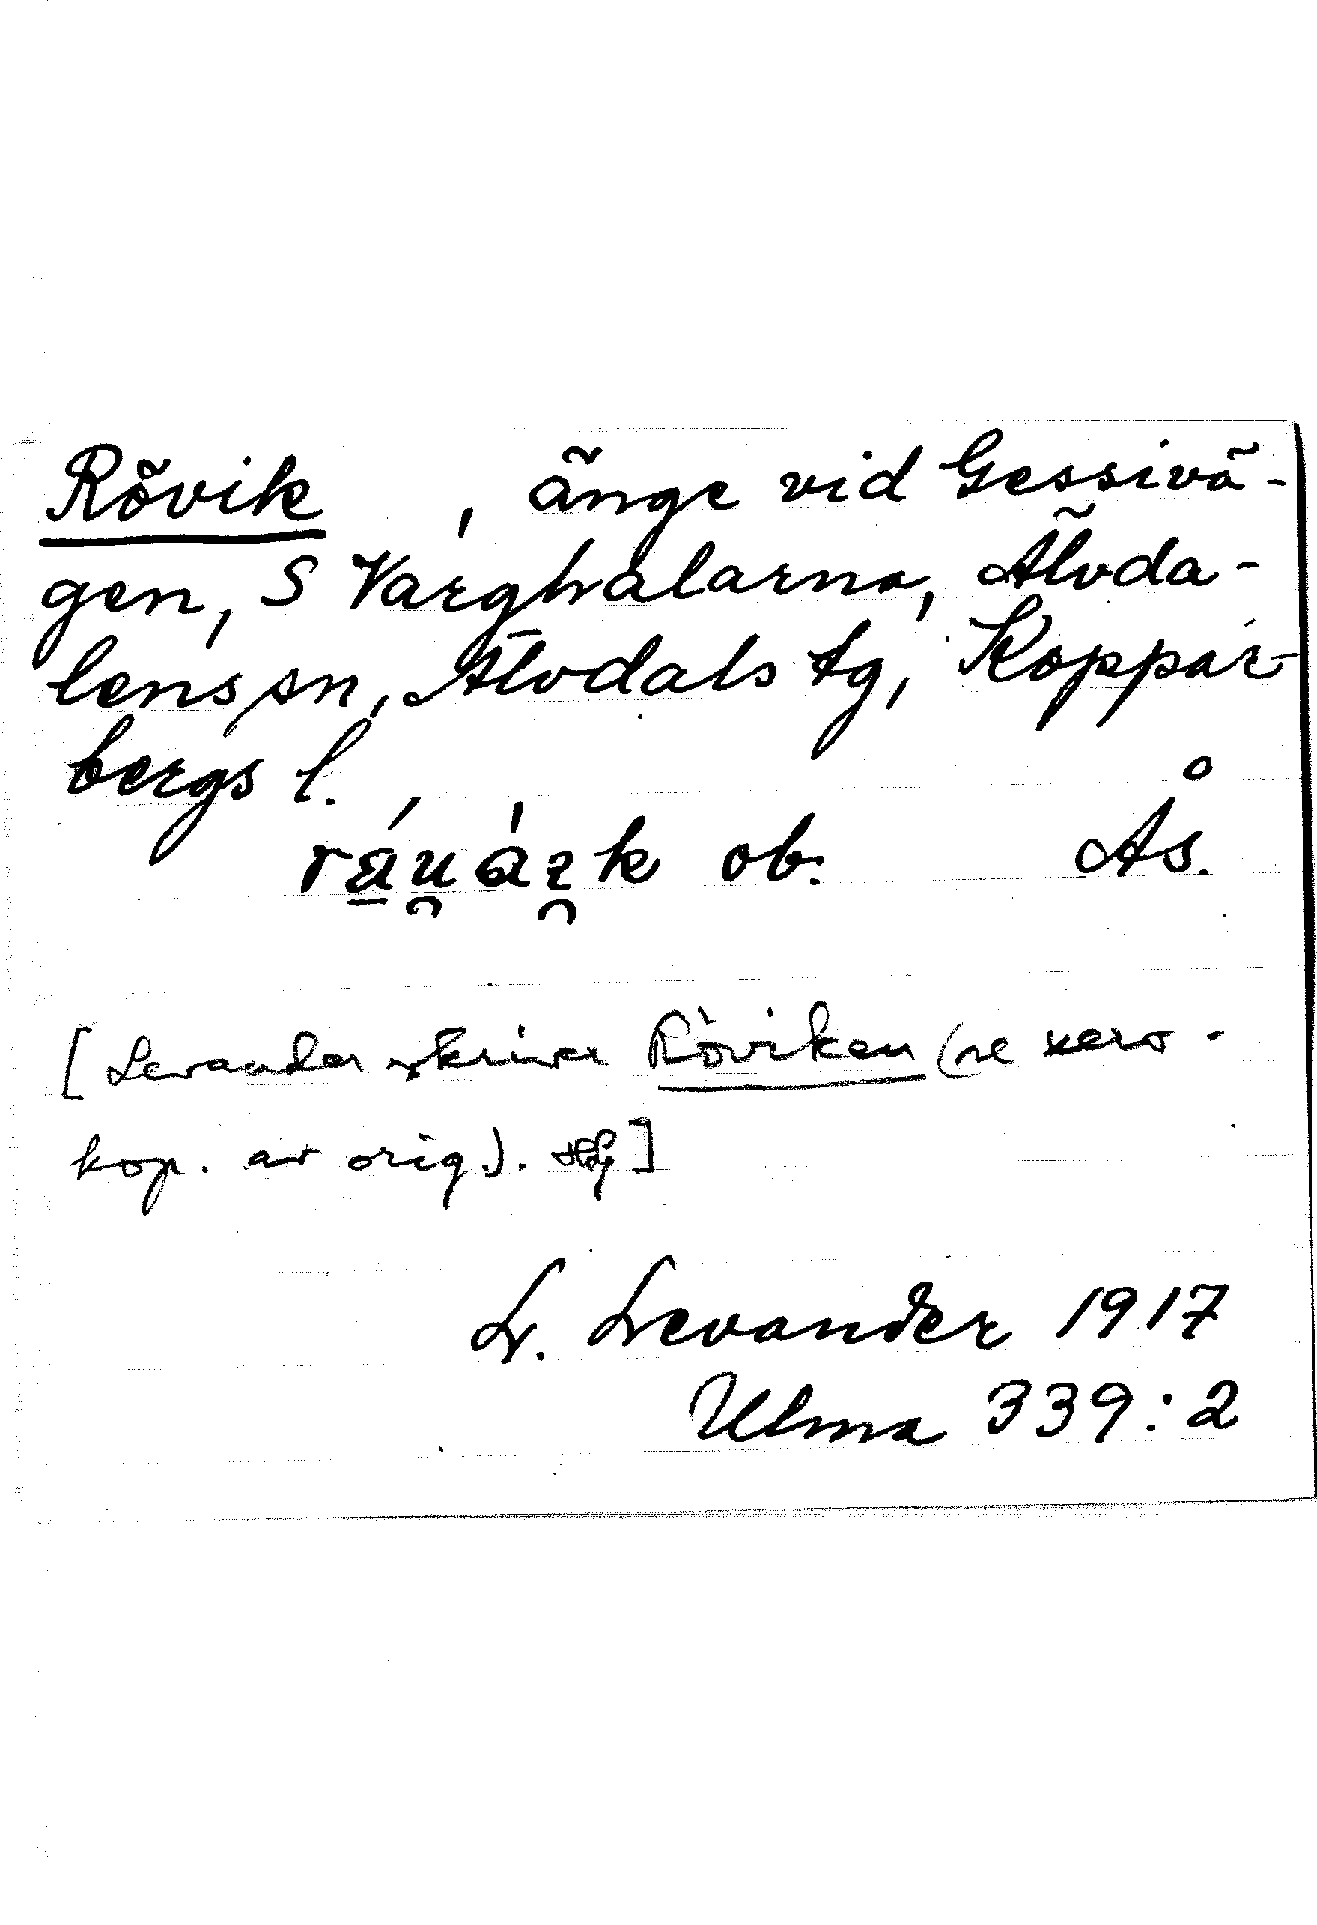 Rövik , änge vid Gessivä-
gen, S Varghalarna, Älvda-
lens sn, Älvdals tg, Koppar-
bergs l.
ob. Ås.
[Levander skriver Röviken (se xero-
kop. av orig.). ]
L. Levander 1917
Ulma 339:2